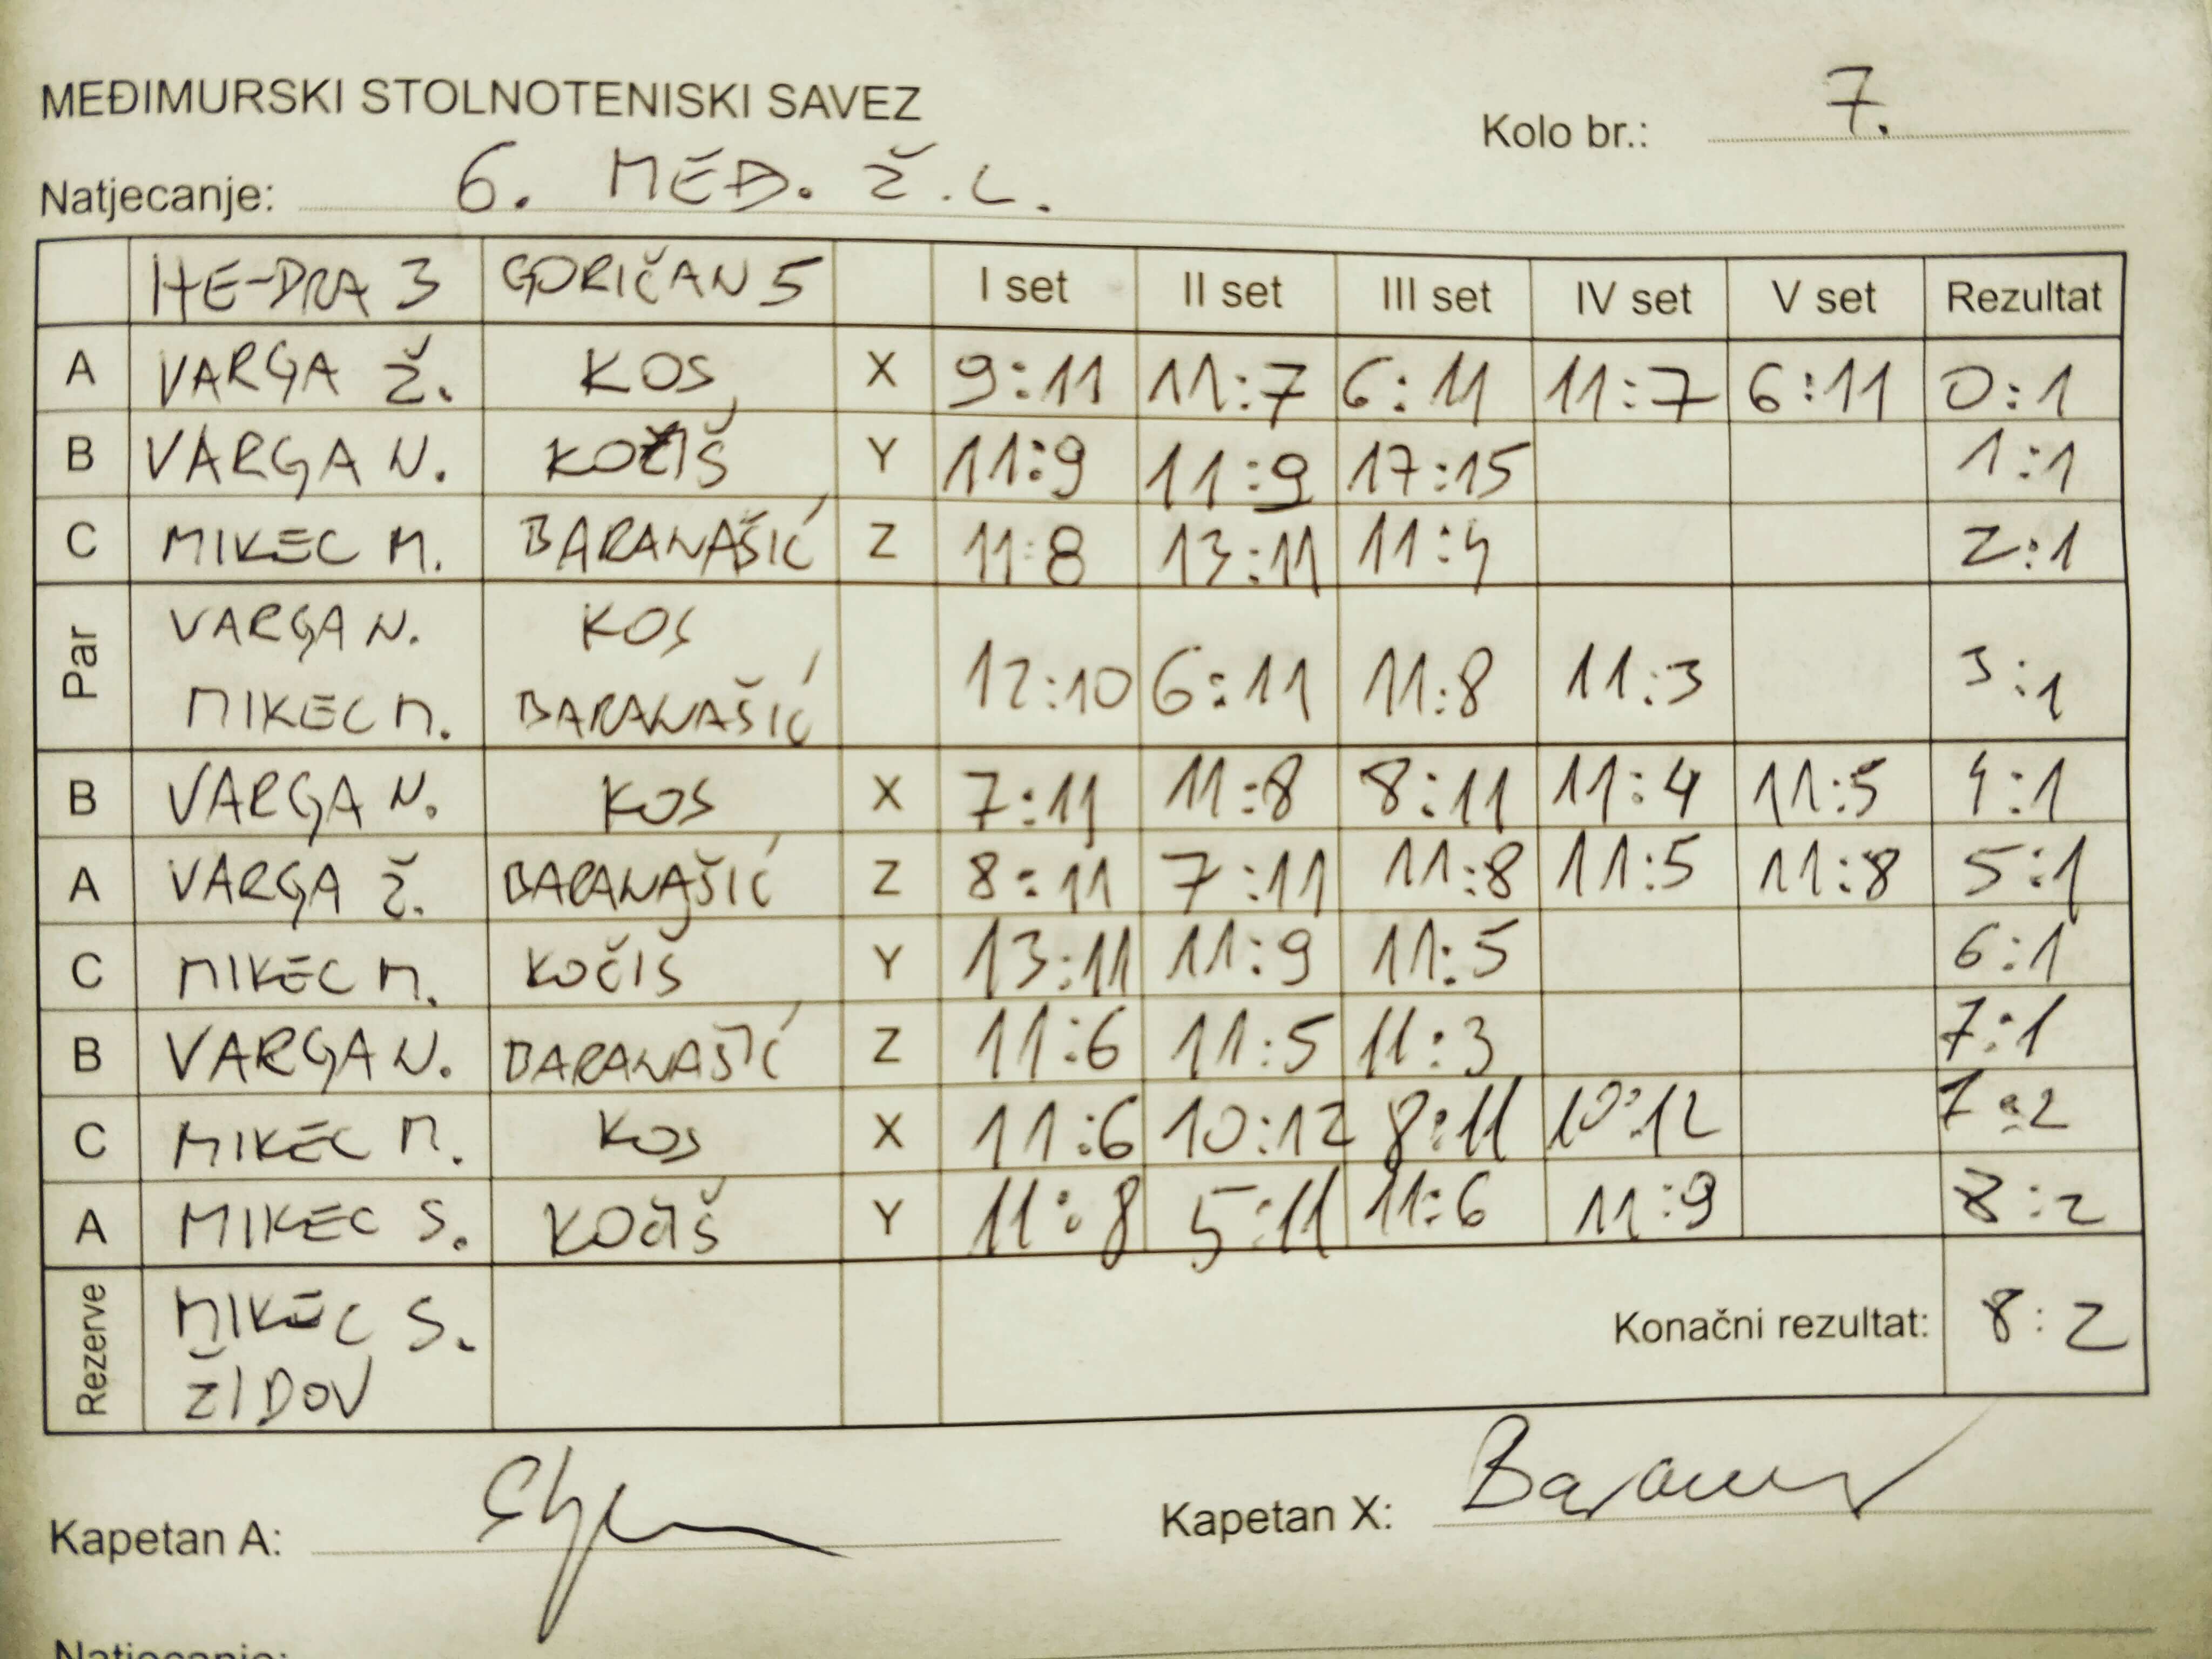 MEĐIMURSKI STOLNOTENISKI SAVEZ
Kolo br.: 7.
Natjecanje: 6. MEĐ. Ž.L.
HE-DRA 3 GORIČAN 5 I set II set III set IV set V set Rezultat
A VARGA Ž. KOS X 9:11 11:7 6:11 11:7 6:11 0:1
B VARGA N. KOČIŠ Y 11:9 11:9 17:15 1:1
C MIKEC M. BARANAŠIĆ Z 11:8 13:11 11:4 2:1
Par VARGA N. KOS 12:10 6:11 11:8 11:3 3:1
MIKEC M. BARANAŠIĆ
B VARGA N. KOS X 7:11 11:8 8:11 11:4 11:5 4:1
A VARGA Ž. BARANAŠIĆ Z 8:11 7:11 11:8 11:5 11:8 5:1
C MIKEC M. KOČIŠ Y 13:11 11:9 11:5 6:1
B VARGA N. BARANAŠIĆ Z 11:6 11:5 11:3 7:1
C MIKEC M. KOS X 11:6 10:12 8:11 10:12 7:2
A MIKEC S. KOČIŠ Y 11:8 5:11 11:6 11:9 8:2
Rezerve MIKEC S. Konačni rezultat: 8:2
ŽIDOV
Kapetan A: Kapetan X:
Natjecanje: